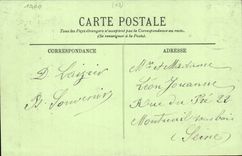 CARTE POSTALE
Tous les Pays étrangers n'acceptent pas la Correspondance au recto.
(Se renseigner à la Poste).
CORRESPONDANCE
ADRESSE
Mr et Madame
Léon Jouanne
Rue du Pré 20
Montreuil sous bois
(Seine)